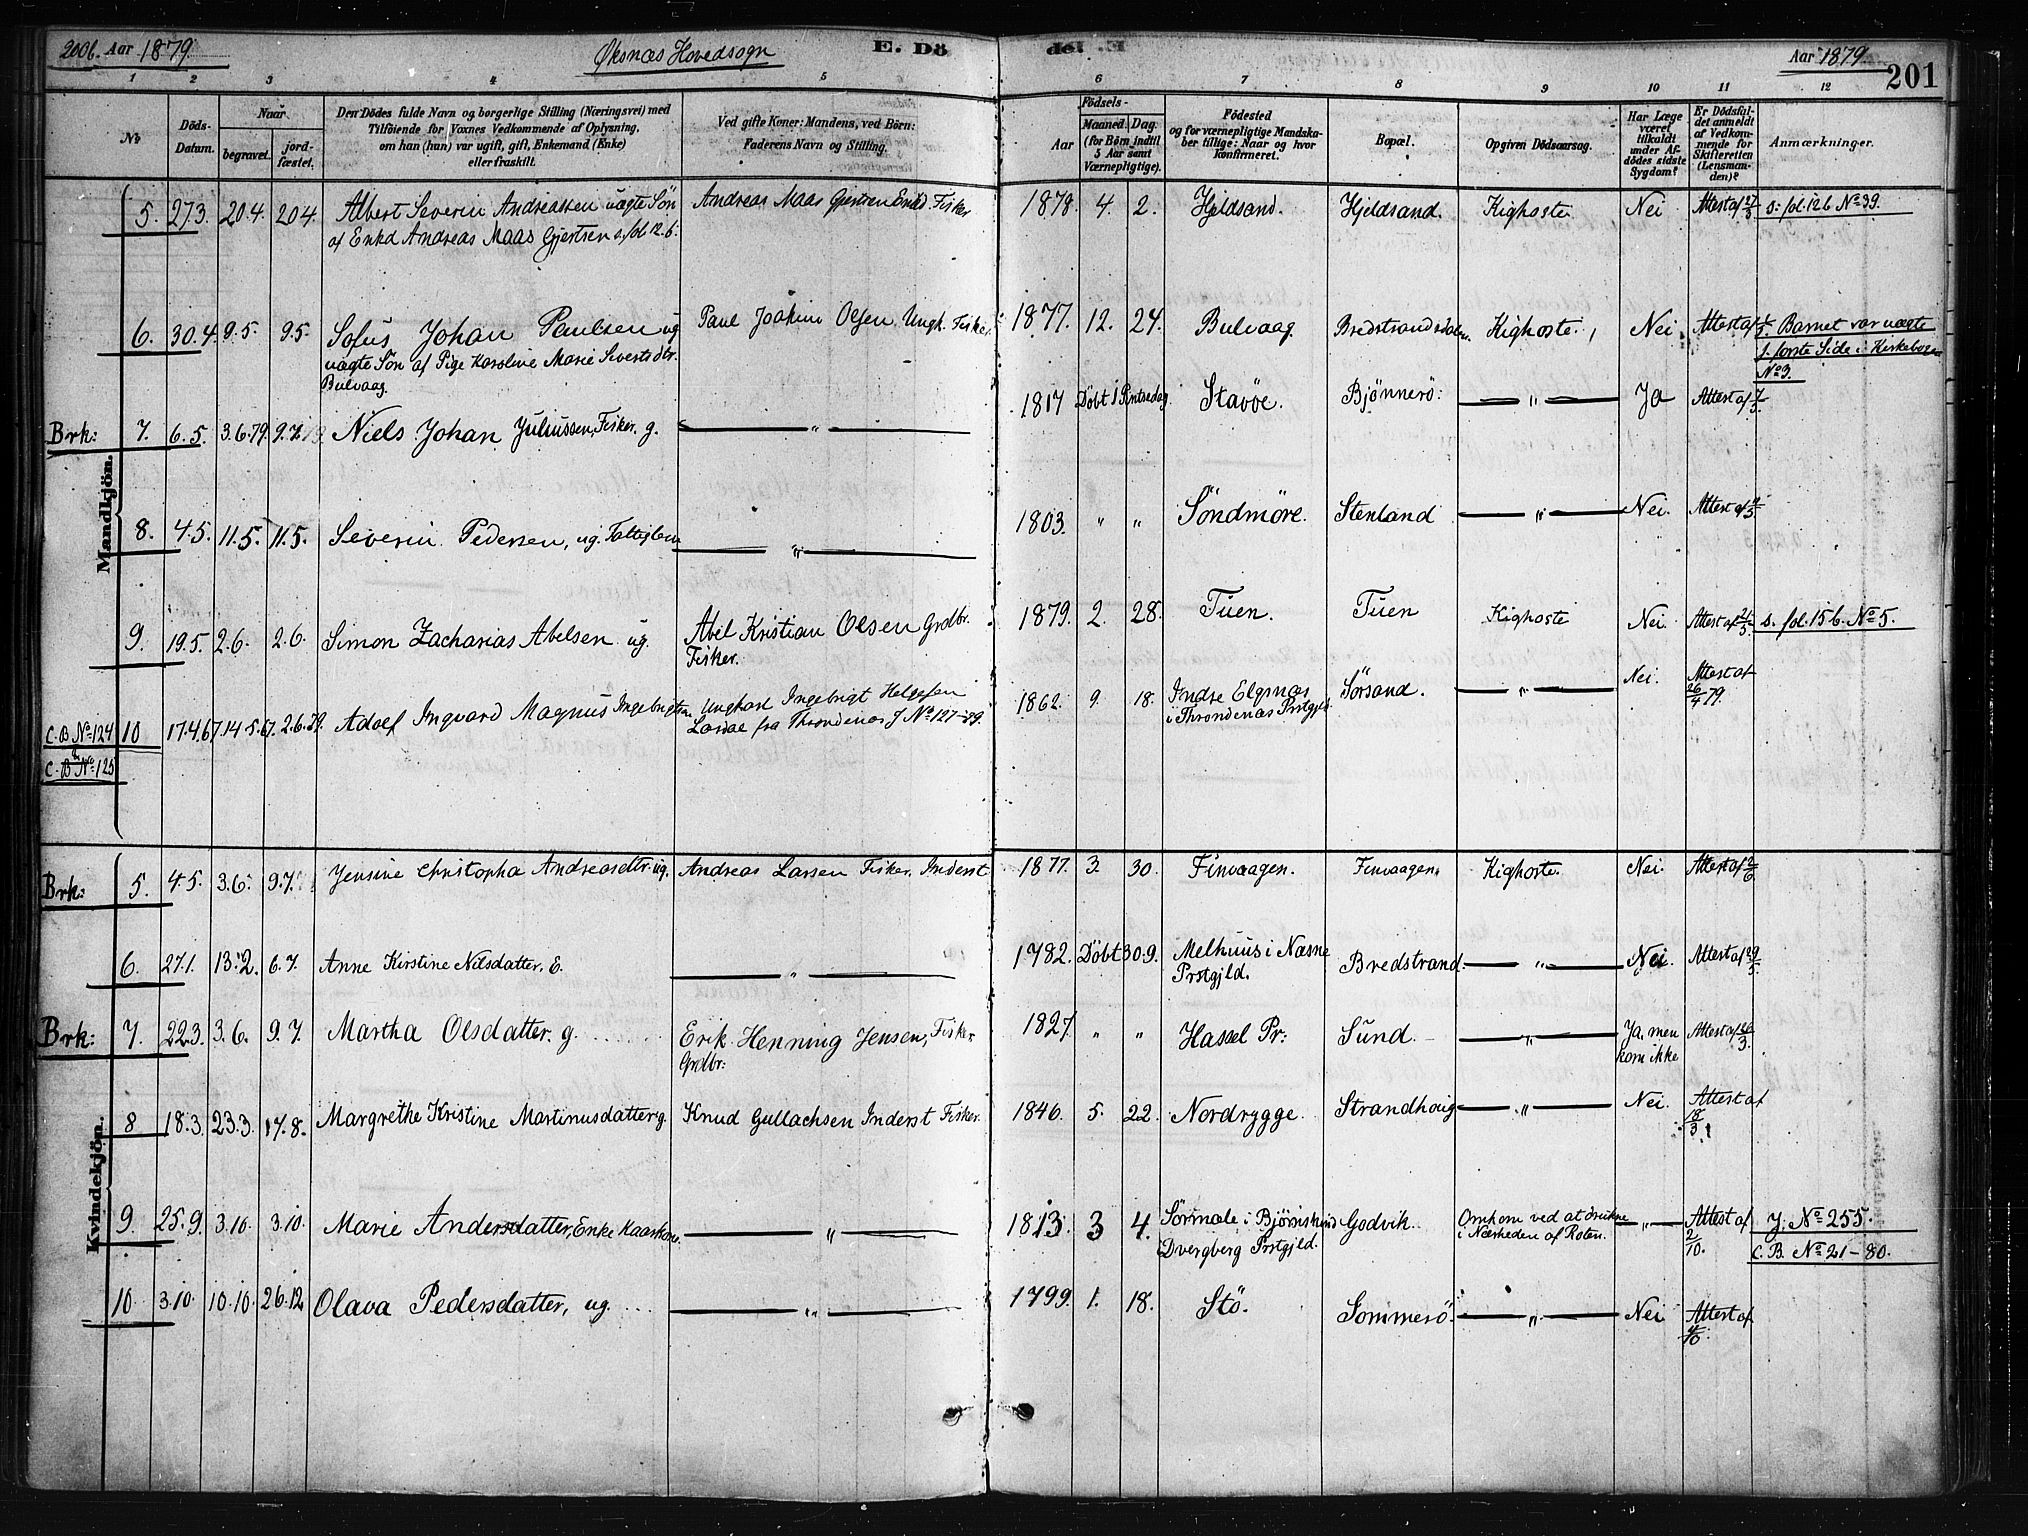 200b. Aar 1879. Øksnæs Hovedsogn E. Dö
de. E Aar 1879. 201
1 2 3 4 5 6 7 8 9 10 11 12
No. Döds-Datum. Naar begravet. jordfæstet.
Den Dödes fulde Navn og borgerlige Stilling (Næringsvei) med
Tilföiende for Voxnes Vedkommende af Oplysning,
om han (hun) var ugift, gift, Enkemand (Enke)
eller fraskilt.
Ved gifte Koner: Mandens, ved Börn:
Faderens Navn og Stilling.
Födsels-
Aar Maaned. Dag.
(for Börn indtil
5 Aar samt
Værnepligtige).
Födested
og for værnepligtige Mandska-
ber tillige: Naar og hvor
konfirmeret.
Bopæl.
Opgiven Dödsaarsag.
Har Læge
været
tilkaldt
under Af-
dödes sidste
Sygdom?
Er Dödsfal-
det anmeldt
af Vedkom-
mende for
Skifteretten
(Lensman-
den)?
Anmærkninger.
Mandkjön.
5. 27.3. 20.4. 20.4. Albert Severin Andreassen uægte Sön Andreas Maas Gjertsen Enkd Fisker 1878 4. 2. Hjeldsand. Hjeldsand. Kighoste Nei Attest af 27/3 s. fol 12b No 39.
af Enkd Andreas Maas Gjertsen s. fol. 12. b.
6. 30.4. 9.5. 9.5. Sofus Johan Paulsen ug Paul Joakim Olsen Ungk. Fisker 1877. 12. 24. Bulvaag. Bredstrandsdalen. Kighoste. Nei. Attest af Barnet var uægte
uægte Sön af Pige Karoline Marie Sivertsdtr. s. förste Side i Kirkebogen
Bulvaag. No 3.
Brk: 7. 6.5. 3.6.79. 9.7. Niels Johan Juliussen, Fisker. g. — " — 1817 Döbt 1 Pintsedag. Stavöe. Bjönnerö. — " — Ja Attest af 7/5.
8. 4.5. 11.5. 11.5. Severin Pedersen, ug. Fattiglem — " — 1803. " " Söndmöre. Stenland — " — Nei. Attest af
9. 19.5. 2.6. 2.6. Simon Zacharias Abelsen ug. Abel Kristian Olsen Grdbr. 1879. 2. 28. Tuen. Tuen Kighoste Nei. Attest af 21/5. s. fol. 15b. No 5.
Fisker.
C. B No 124 10 17.4.67. 14.5.67. 2.6.79. Adolf Ingvard Magnus Ingebrigtsen Ungkarl Ingebrigt Helgesen 1862. 9. 18. Indre Elgsnæs Sörsand. — " — Nei. Attest af
& fra Throndenæs J No 127-79. i Throndenæs Prstgjld. 26/4 79.
C. B No 125
Kvindekjön.
Brk: 5. 4.5. 3.6. 9.7. Jensine Christopha Andreasdtter ug. Andreas Larsen Fisker, Inderst 1877. 3. 30. Finvaagen. Finvaagen. Kighoste. Nei. Attest af 2/6
6. 27.1. 13.2. 6.7. Anne Kirstine Nilsdatter. E. — " — 1782. Döbt 30.9. Melhuus i Næsne Bredstrand. — " — Nei. Attest af 29/5.
Prstgjld.
Brk: 7. 22.3. 3.6. 9.7. Martha Olsdatter. g. Erik Henning Jensen, Fisker 1827. " " Hassel Pr: Sund. — " — Ja, men Attest af 26/3.
Grdbr: kom ikke
8 18.3. 23.3. 17.8. Margrethe Kristine Martinusdatter g. Knud Gullachsen Inderst Fisker. 1846. 5. 22. Nordrygge. Strandhaug — " — Nei. Attest af
18/3.
9. 25.9. 3.10. 3.10. Marie Andersdatter, Enke Kaarkone. — " — 1813. 3 4. i Godvik. Omkom ved at drukne — " — Attest af J. No 255.
Dvergberg Prstgjld. i Nærheden af Roten. 2/10. C. B. No 21-80.
10. 3.10. 10.10. 26.12 Olava Pedersdatter, ug. — " — 1799. 1. 18. Stö. Sommerö. — " — Nei Attest af
4/10.